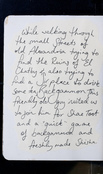 While walking through
the small streets of
old Alexandria trying to
find the Ruins of El
also trying to
find a place to
some backgammon, this
friendly old Guy invited us
to join him for
and a "quick" game
of backgammon and
freshly made